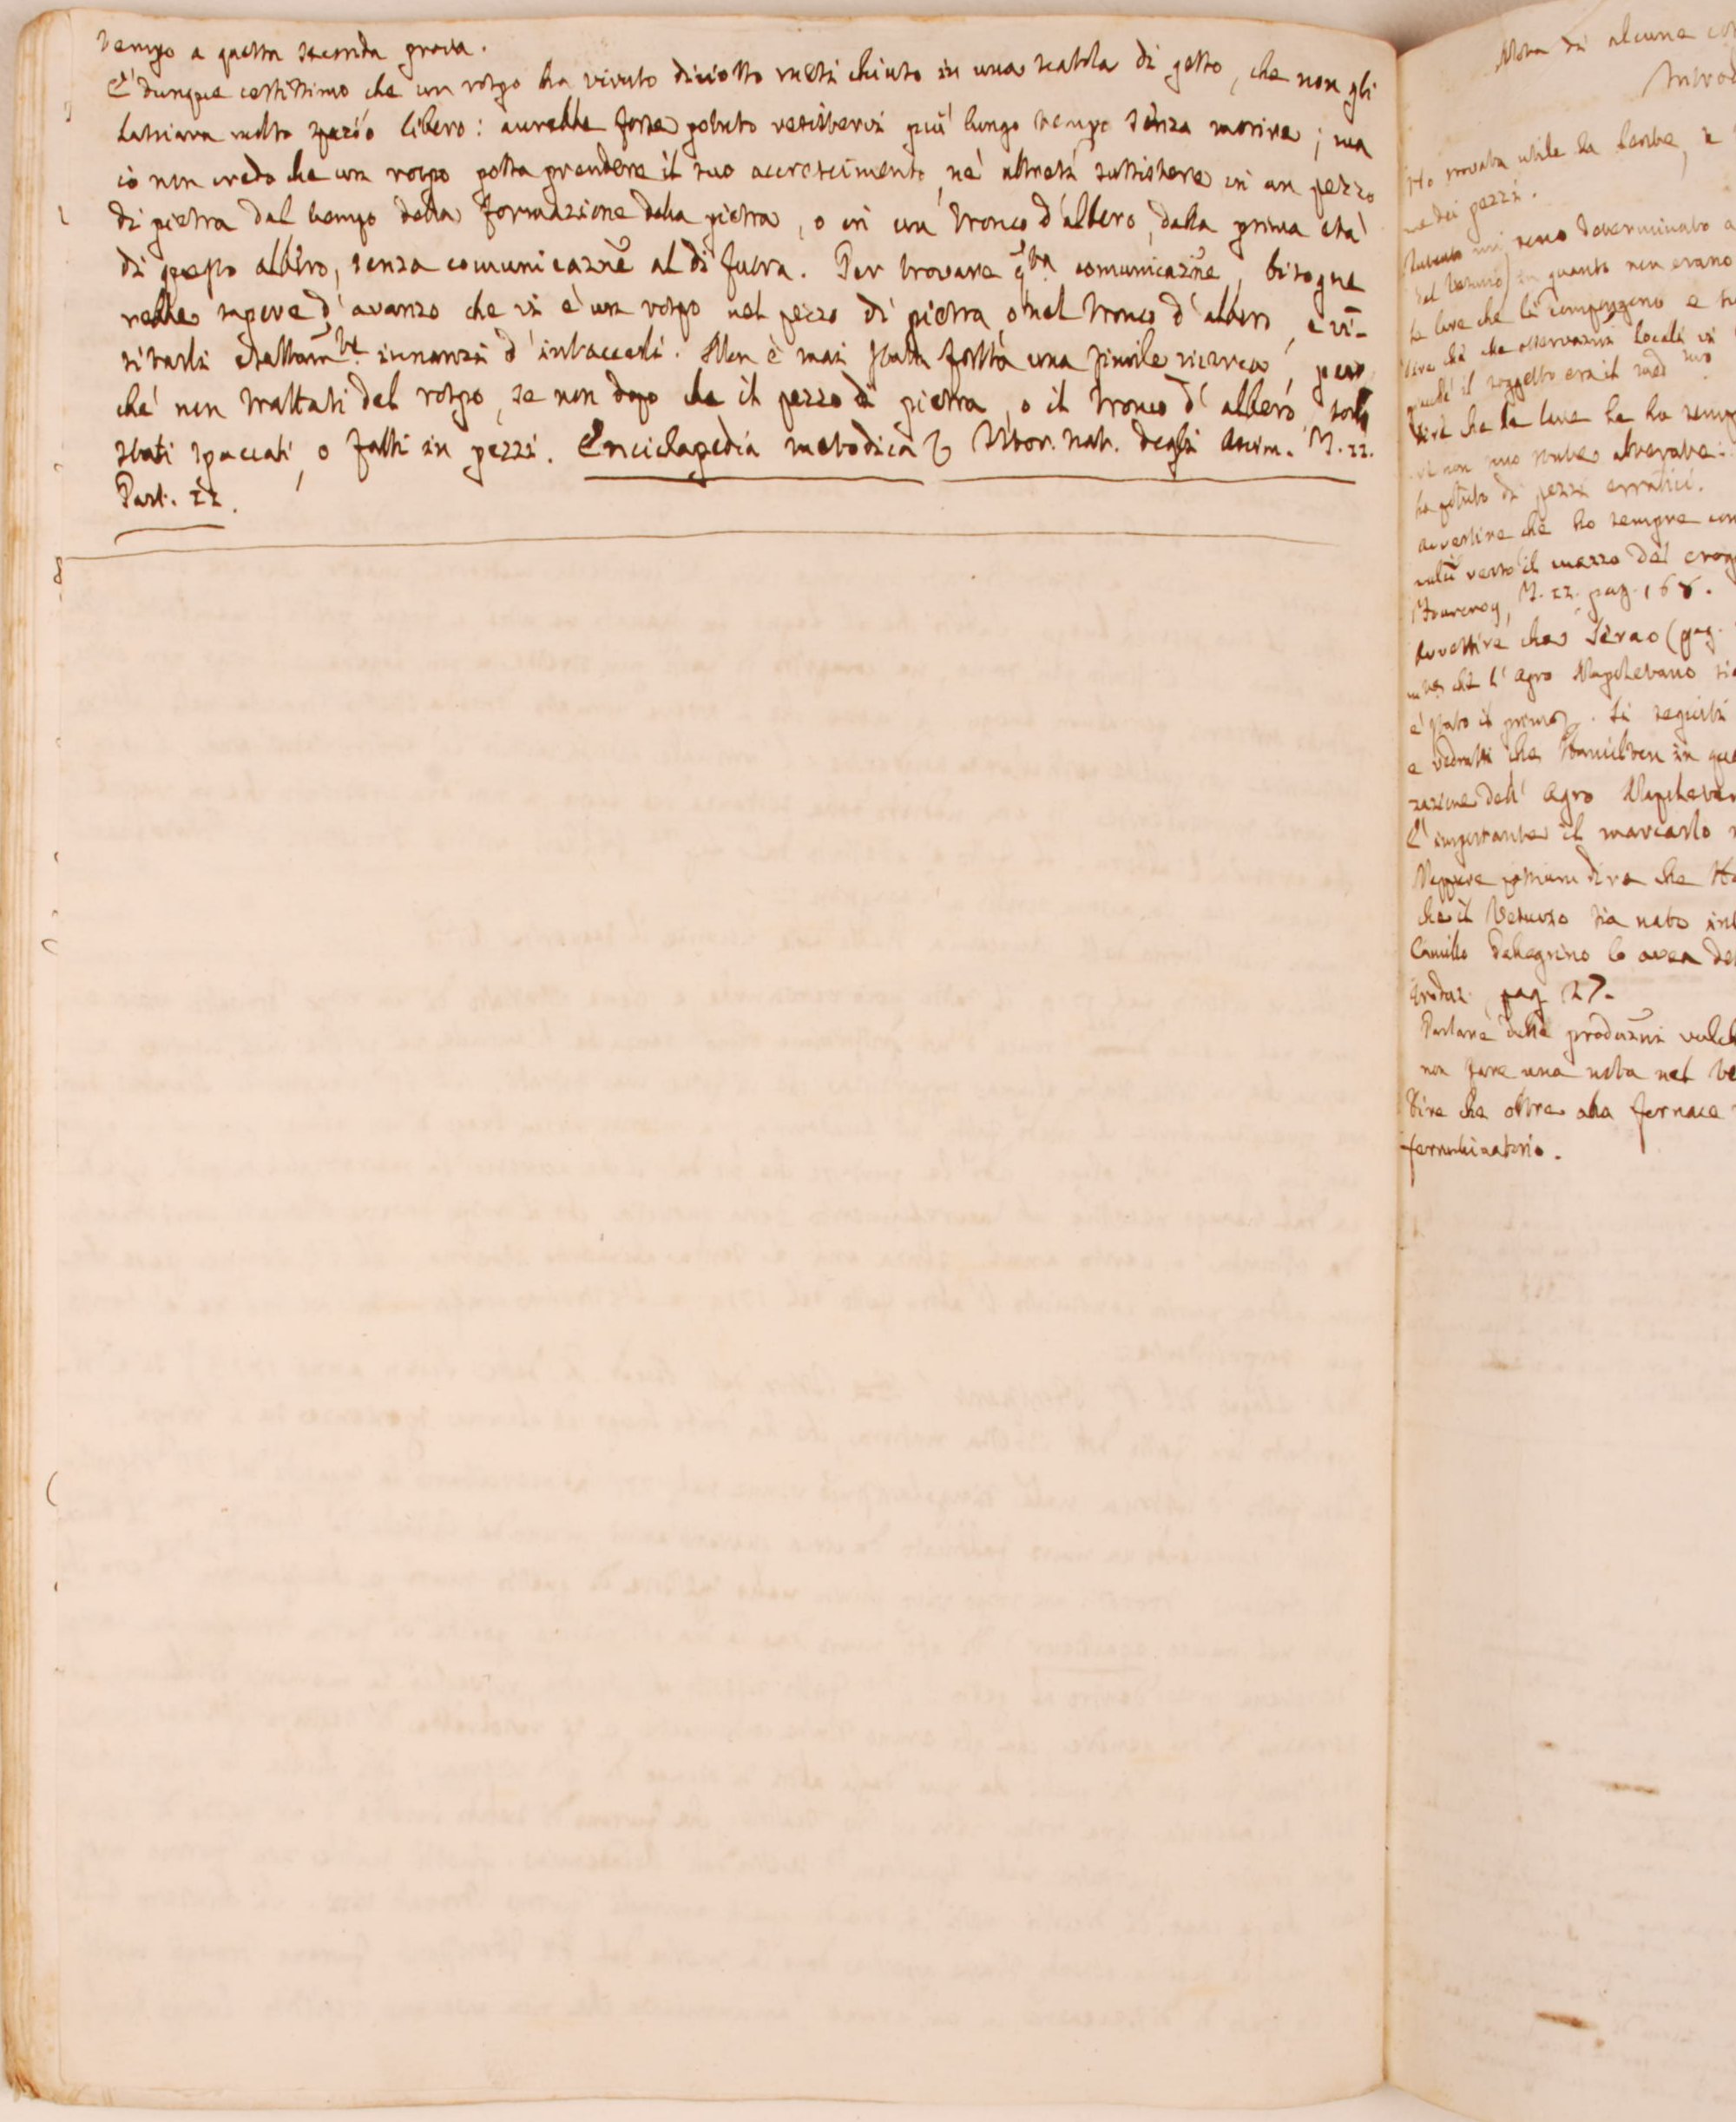 tempo a questa seconda prova.
E' dunque certissimo che un rospo ha vivuto diciotto mesi chiuso in una scatola di gesso, che non gli
lasciava molto spazio libero: avrebbe forse potuto resistervi più lungo tempo senza morire; ma
io non credo che un rospo possa prendere il suo accrescimento, nè altresì sussistere in un pezzo
di pietra dal tempo della formazione della pietra, o in un tronco d'albero, dalla prima età
di questo albero, senza comunicazne al di fuora. Per trovare qsta comunicazne, bisogne
rebbe sapere d'avanzo che vi è un rospo nel pezzo di pietra, o nel tronco d'albero, e vi-
sitarli esattamte innanzi d'intaccarli. Non è mai stata fatta una simile ricerca, per
chè non trattasi del rospo, se non dopo che il pezzo di pietra, o il tronco d'albero, sono
stati spaccati, o fatti in pezzi. Enciclopedia metodica Istor. nat. degli Anim. T. II.
Part. II.
Nota di alcune
Introd
Ho trovata utile la
ne dei pezzi.
sono determinato a
del Vesuvio in quanto non erano
le lave che la compongono e
che osservazni locali
il soggetto era il medmo
dire che le lave le ha semp
non
ha potuto di pezzi erratici.
avvertire che ho sempre
verso il mezzo del
Fourcroy, T. II. pag. 168.
Avvertire che Serao (pag.
che l'Agro Napoletano
è stato il primo. Si
e vedrassi che Hamilton in
zazione dell'Agro Napoleta
E' importante il marcarlo
Neppure possiam dire che
che il Vesuvio sia nato
Camillo Pellegrino lo avea
pag. 27.
Parlare delle produzni vulc
non fare una nota nel
Dire che oltre alla fornace